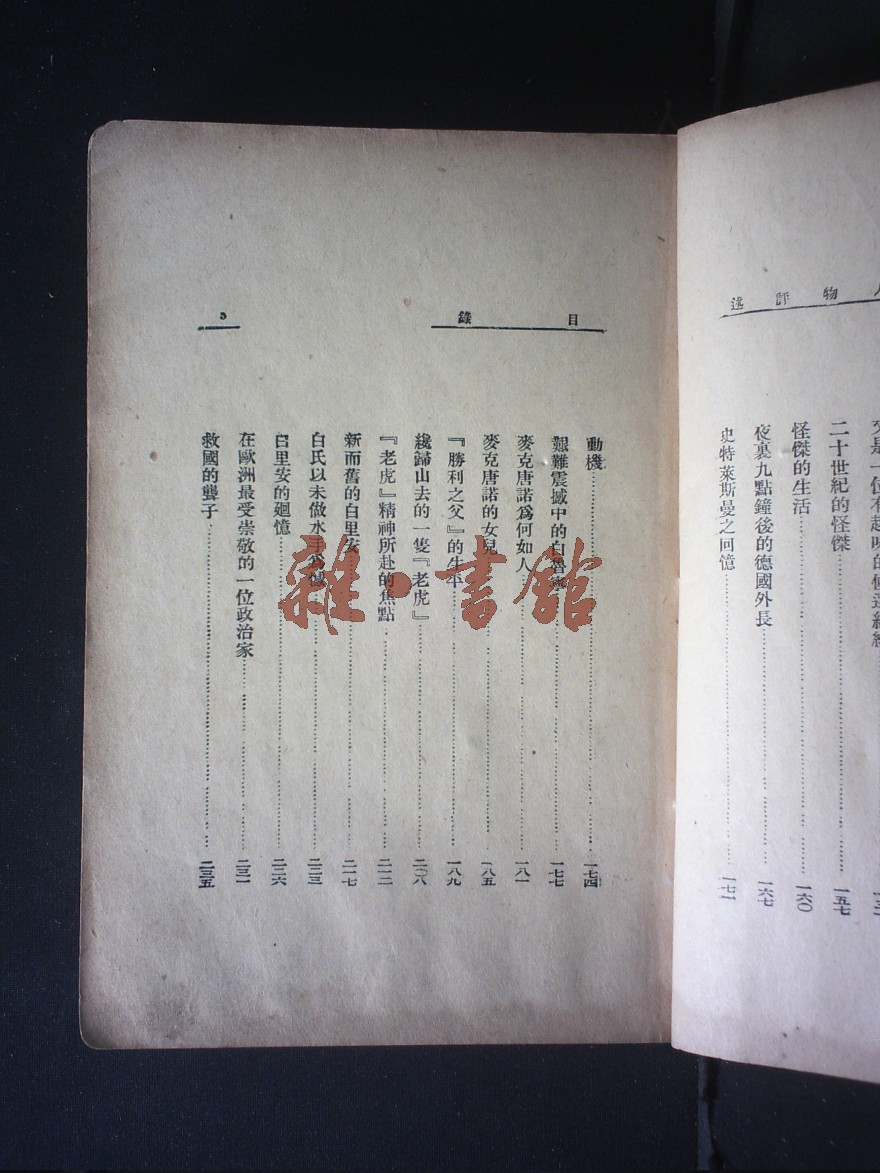 物評述
二十世紀的怪傑 一五七
怪傑的生活 一六〇
夜裏九點鐘後的德國外長 一六七
史特萊斯曼之回憶 一七一
目錄
動機 一七四
艱難震撼中的白魯寧 一七七
麥克唐諾爲何如人 一八一
麥克唐諾的女兒 一八五
『勝利之父』的生平 一八九
纔歸山去的一隻『老虎』 二〇八
『老虎』精神所赴的焦點 二一二
新而舊的白里安 二一七
白氏以未做水手爲憾 二二三
白里安的廻憶 二二六
在歐洲最受崇敬的一位政治家 二三一
救國的聾子 二三五
雜·書館